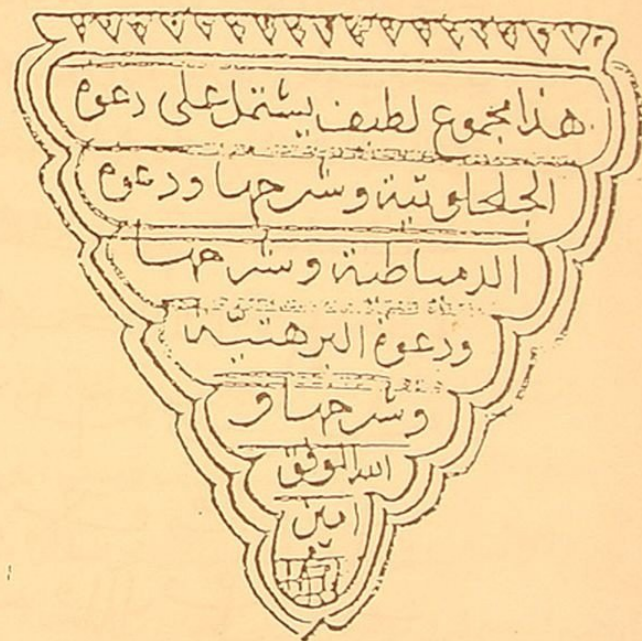 هذا مجموع لطيف يشتمل على دعوة
الجلجلوتية وشرحها ودعوة
الدمياطية وشرحها
ودعوة البرهتية
وشرحها و
الله الموفق
امين